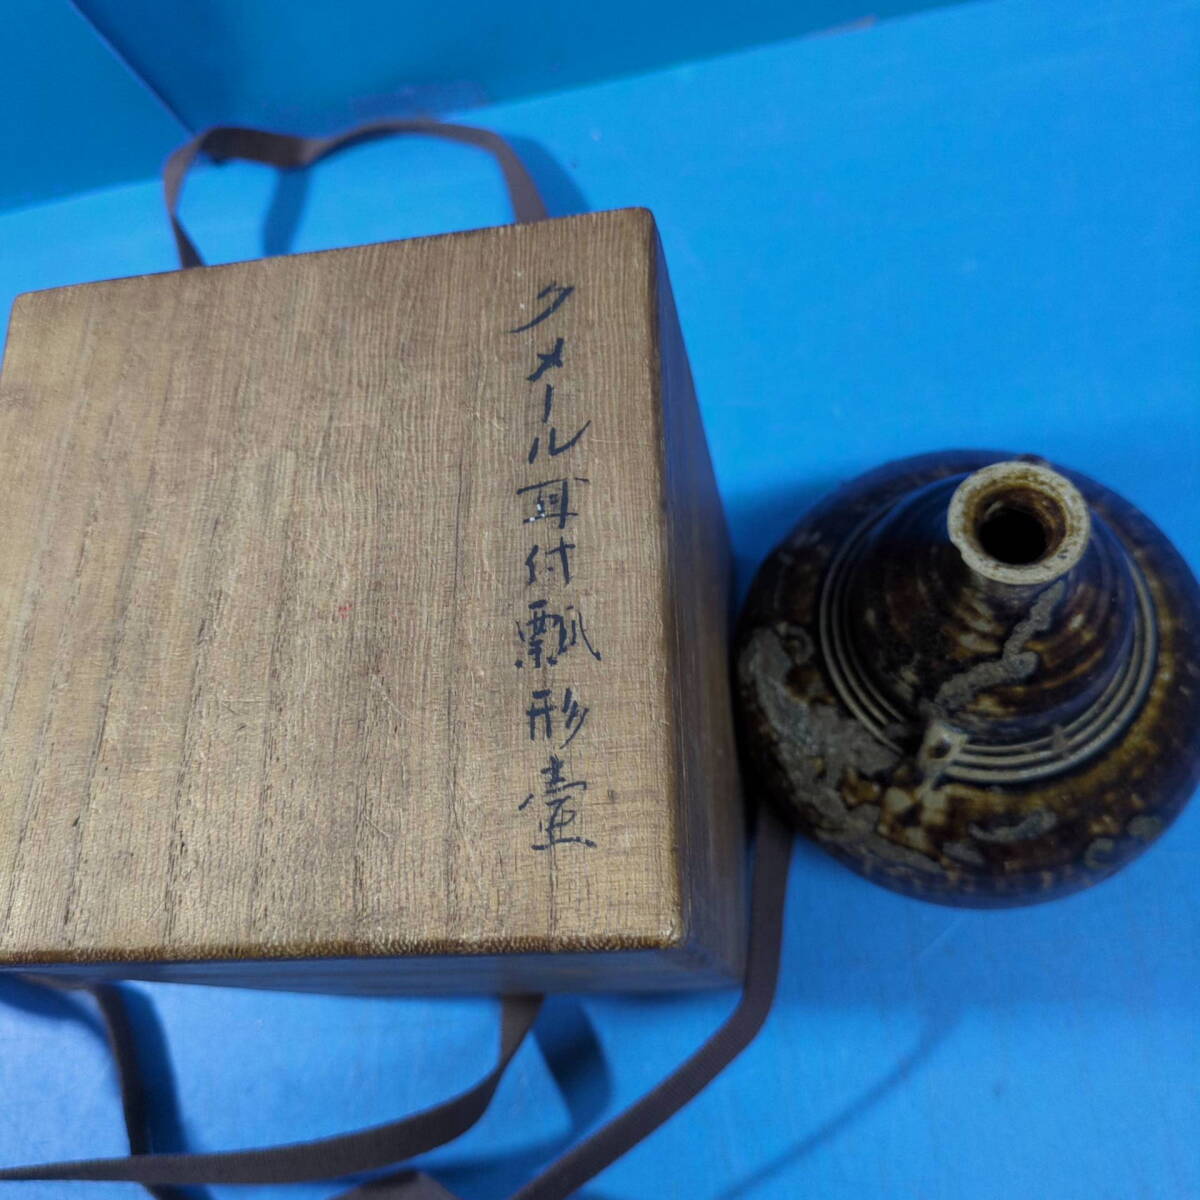 クメール耳付瓢形壷